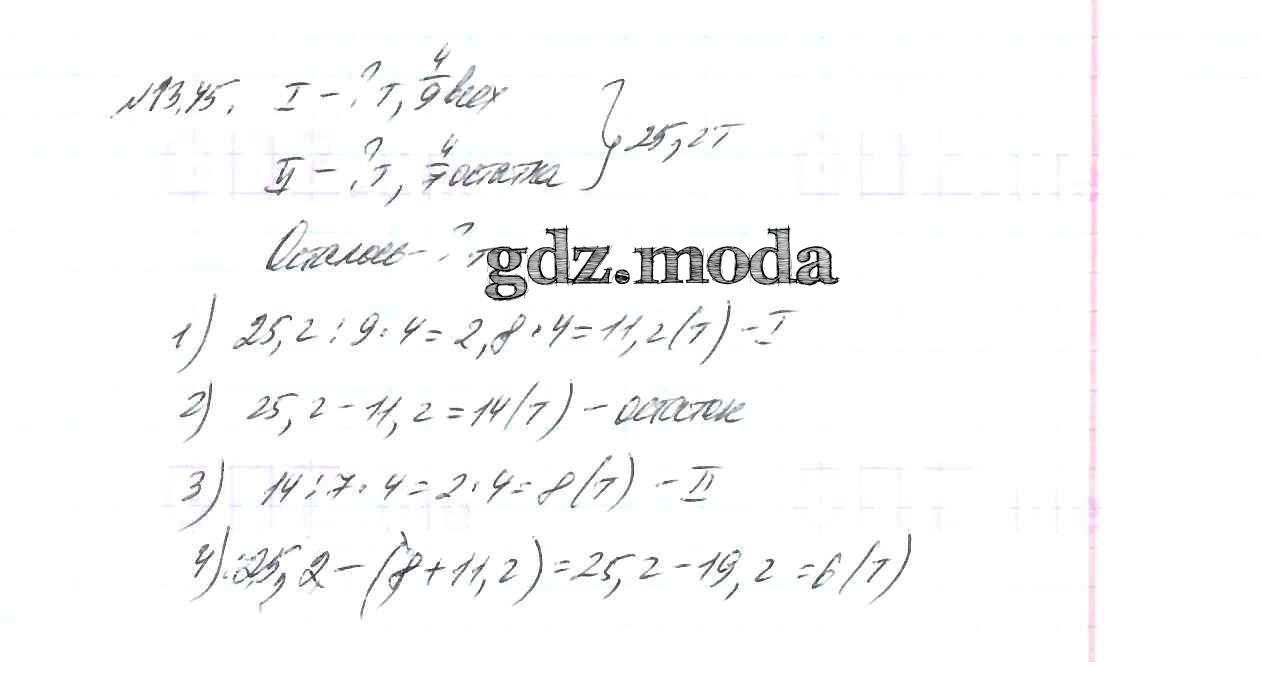 №13.45. I – ? т, 4/9 всех
II – ? т, 4/7 остатка } 25,2 т
Осталось – ? т
gdz.moda
1) 25,2 : 9 · 4 = 2,8 · 4 = 11,2 (т) – I
2) 25,2 – 11,2 = 14 (т) – остаток
3) 14 : 7 · 4 = 2 · 4 = 8 (т) – II
4) 25,2 – (8 + 11,2) = 25,2 – 19,2 = 6 (т)